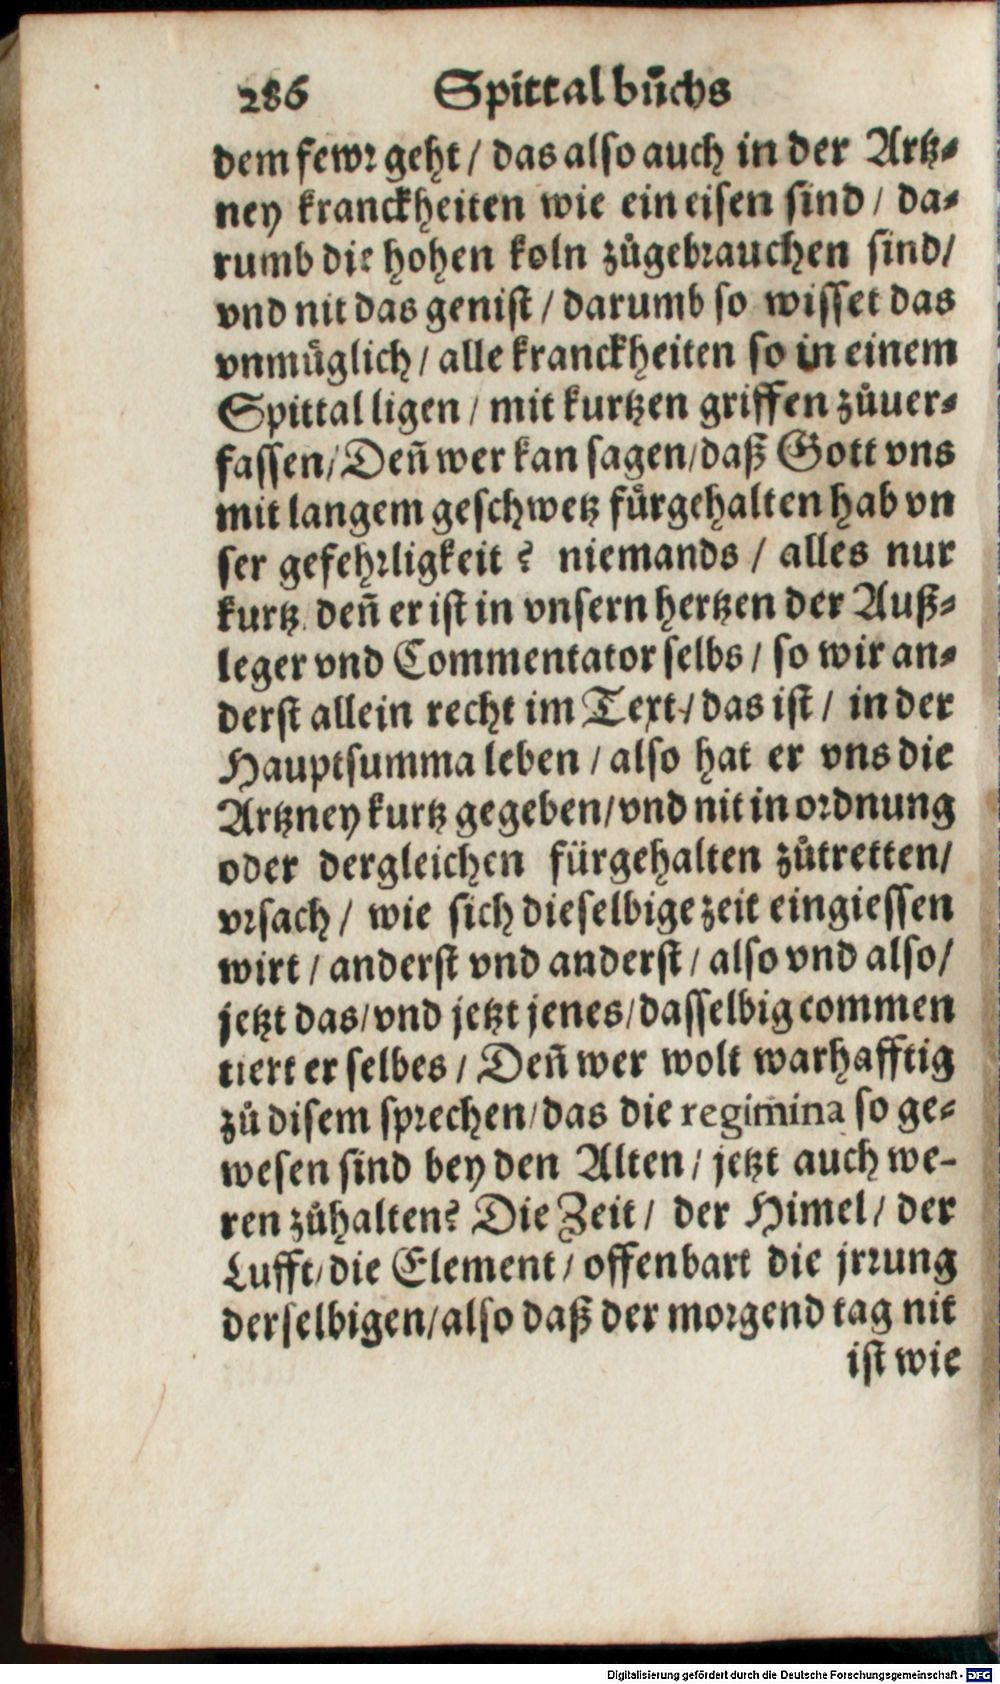 286 Spittalbůchs
dem fewr geht / das also auch in der Artz-
ney kranckheiten wie ein eisen sind / da-
rumb die hohen koln zůgebrauchen sind /
vnd nit das genist / darumb so wisset das
vnmüglich / alle kranckheiten so in einem
Spittal ligen / mit kurtzen griffen zůuer-
fassen / Deñ wer kan sagen / daß Gott vns
mit langem geschwetz fürgehalten hab vn
ser gefehrligkeit? niemands / alles nur
kurtz. deñ er ist in vnsern hertzen der Auß-
leger vnd Commentator selbs / so wir an-
derst allein recht im Text / das ist / in der
Hauptsumma leben / also hat er vns die
Artzney kurtz gegeben / vnd nit in ordnung
oder dergleichen fürgehalten zůtretten /
vrsach / wie sich dieselbige zeit eingiessen
wirt / anderst vnd anderst / also vnd also /
jetzt das / vnd jetzt jenes / dasselbig commen
tiert er selbes / Deñ wer wolt warhafftig
zů disem sprechen / das die regimina so ge-
wesen sind bey den Alten / jetzt auch we-
ren zůhalten? Die Zeit / der Himel / der
Lufft / die Element / offenbart die jrrung
derselbigen / also daß der morgend tag nit
ist wie
Digitalisierung gefördert durch die Deutsche Forschungsgemeinschaft - DFG